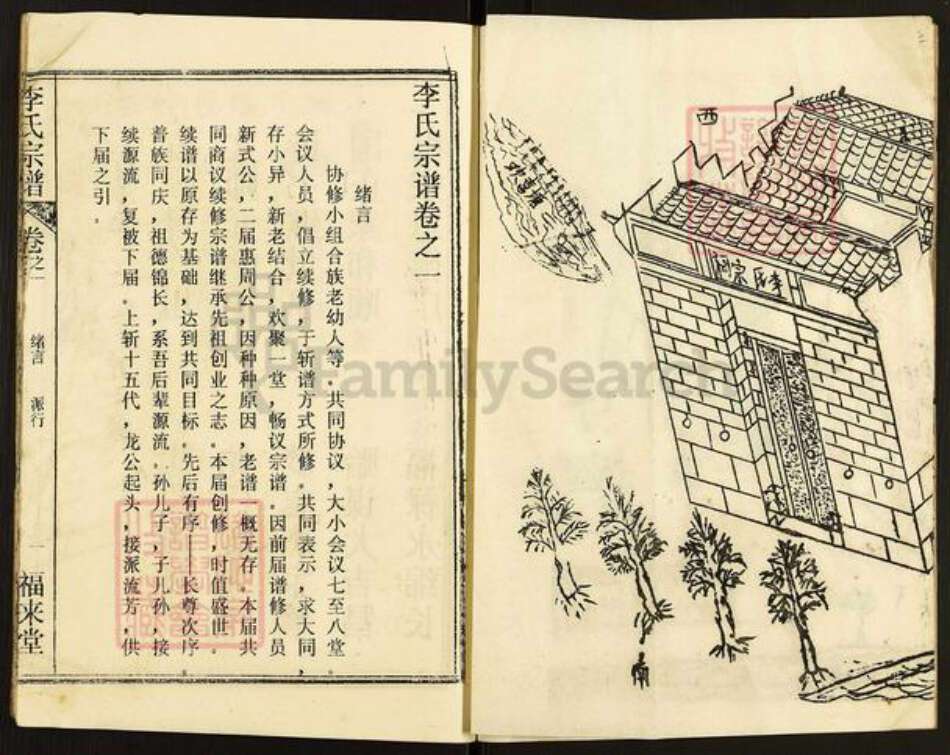 西
李氏宗祠
南
李氏宗谱卷之一
绪言
协修小组合族老幼人等。共同协议，大小会议七至八堂。
会议人员，倡立续修，于斩谱方式所修。共同表示，求大同，
存小异，新老结合，欢聚一堂，畅议宗谱。因前届谱修人员
新式公，二届惠周公，因种种原因，老谱一概无存。本届共
同商议续修宗谱继承先祖创业之志。本届创修，时值盛世。
续谱以原存为基础，达到共同目标。先后有序，长尊次序。
普族同庆，祖德锦长，系吾后辈源流。孙儿子，子儿孙，接
续源流，复被下届。上斩十五代，龙公起头，接派流芳，供
下届之引。
李氏宗谱
卷之一
绪言
派行
一
福来堂
FamilySearch